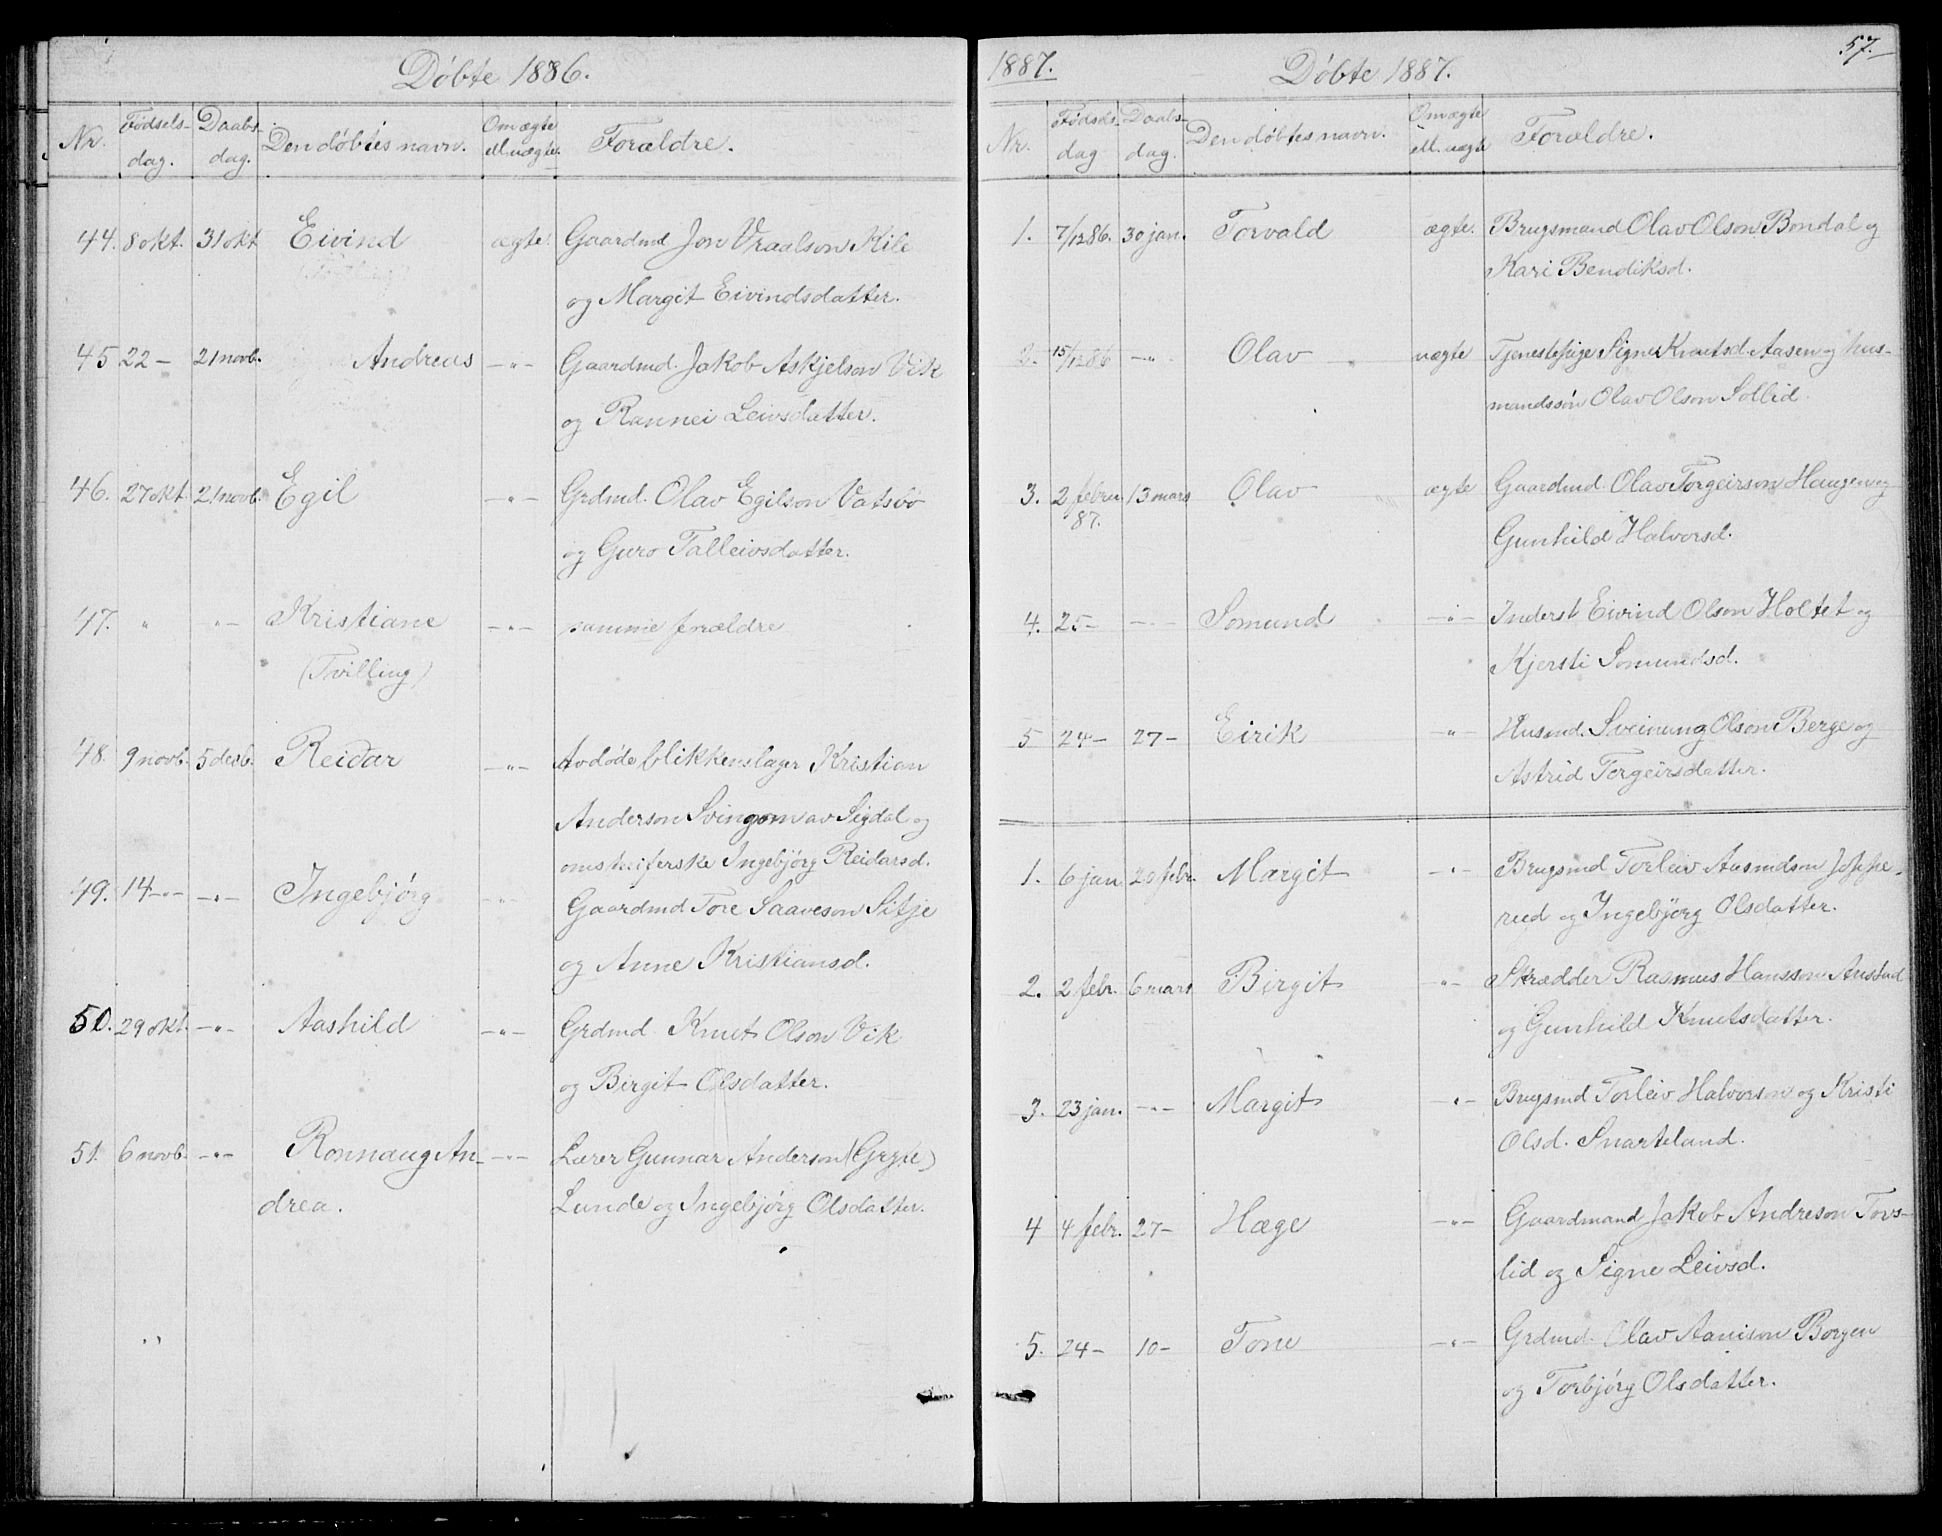 Døbte 1886.
Nr. Fødsels-dag. Daabs-dag. Den døbtes navn. Om ægte ell. uægte. Forældre.
44. 8 okt. 31 okt Eivind ægte. Gaardmd Jon Vraalson Kile
og Margit Eivindsdatter.
45 22 – 21 novb. Andreas –"– Gaardmd. Jakob Askjelson Vik
og Rannei Leivsdatter.
46. 27 okt. 21 novb. Egil –"– Grdmd. Olav Egilson Vatsbø
og Guro Talleivsdatter.
47. " "– Kristiane –"– samme forældre
(Tvilling)
48. 9 novb. 5 desb. Reidar –"– Avdøde blikkenslager Kristian
Anderson Svingom av Sigdal og
Ingebjørg Reidarsd.
49. 14 –"– –"– Ingebjørg –"– Gaardmd Tore Saaveson Sitje
og Anne Kristiansd.
50. 29 okt. –"– Aashild –"– Grdmd Knut Olson Vik
og Birgit Olsdatter.
51. 6 novb. –"– Ronnaug An- –"– Lærer Gunnar Anderson
drea. Lunde og Ingebjørg Olsdatter.
57.
1887. Døbte 1887.
Nr. Fødsels-dag Daabs-dag. Den døbtes navn. Om ægte ell. uægte Forældre.
1. 7/12 86. 30 jan. Torvald ægte. Brugsmand Olav Olson Bondal og
Kari Bendiksd.
2. 15/12 86 –"– Olav uægte Tjenestepige Signe Knutsd. Aasen og hus-
mandssøn Olav Olson Sollid.
3. 2 febru 87. 13 mars Olav ægte Gaardmd. Olav Torgeirson Haugen og
Gunhild Halvorsd.
4. 25 – –"– Somund –"– Inderst Eivind Olson Holtet og
Kjersti Somundsd.
5 24 – 27 – Eirik –"– Husmd. Sveinung Olson Berge og
Astrid Torgeirsdatter.
1. 6 jan. 20 febr. Margit –"– Brugsmd Torleiv Aasmdson Joppe-
rud og Ingebjørg Olsdatter.
2. 2 febr. 6 mars Birgit –"– Skrædder Rasmus Hansson
og Gunhild Knutsdatter.
3. 23 jan. –"– Margit –"– Brugsmd Torleiv Halvorson og Kristi
Olsd. Snarteland.
4 4 febr. 27 – Hæge –"– Gaardmand Jakob Andreson Tovs-
lid og Signe Leivsd.
5. 24 – 10 – Tone –"– Grdmd. Olav Aanison Borgen
og Torbjørg Olsdatter.